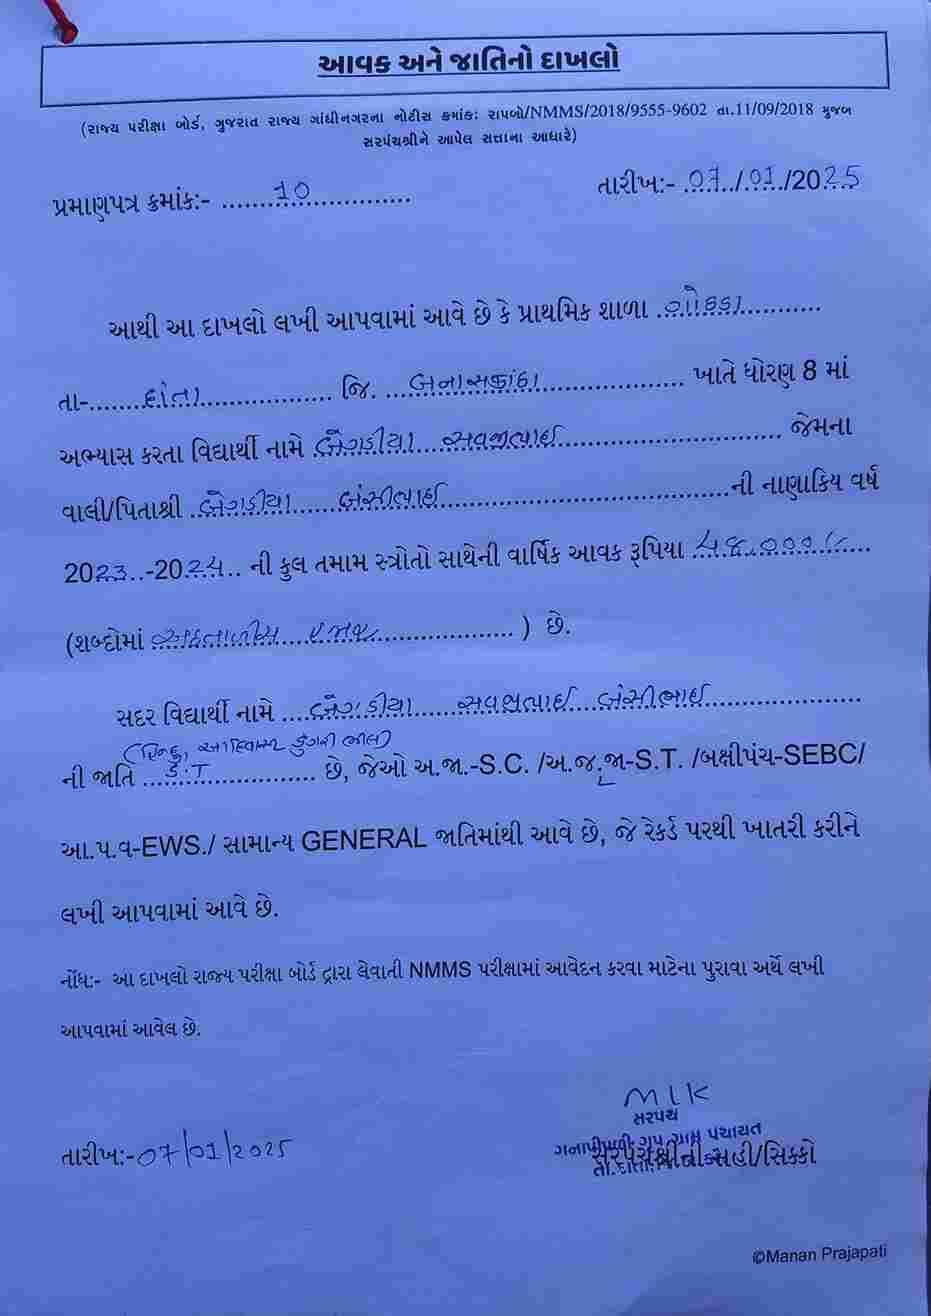 આવક અને જાતિનો દાખલો
(રાજ્ય પરીક્ષા બોર્ડ, ગુજરાત રાજ્ય ગાંધીનગરના નોટીસ ક્રમાંક: રાપબો/NMMS/2018/9555-9602 તા.11/09/2018 મુજબ
સરપંચશ્રીને આપેલ સત્તાના આધારે)
પ્રમાણપત્ર ક્રમાંક:- 10 તારીખ:- 07/01/2025
આથી આ દાખલો લખી આપવામાં આવે છે કે પ્રાથમિક શાળા
તા- દાંતા જિ. બનાસકાંઠા ખાતે ધોરણ 8 માં
અભ્યાસ કરતા વિદ્યાર્થી નામે બેગડીયા સવજીભાઈ જેમના
વાલી/પિતાશ્રી બેગડીયા બંસીભાઈ ની નાણાકિય વર્ષ
2023-2024 ની કુલ તમામ સ્ત્રોતો સાથેની વાર્ષિક આવક રૂપિયા 48,000/-
(શબ્દોમાં અડતાળીસ હજાર ) છે.
સદર વિદ્યાર્થી નામે બેગડીયા સવજીભાઈ બંસીભાઈ
(હિન્દુ, આદિવાસી ડુંગરી ભીલ)
ની જાતિ S.T છે, જેઓ અ.જા.-S.C. /અ.જ.જા-S.T. /બક્ષીપંચ-SEBC/
આ.પ.વ-EWS./ સામાન્ય GENERAL જાતિમાંથી આવે છે, જે રેકર્ડ પરથી ખાતરી કરીને
લખી આપવામાં આવે છે.
નોંધ:- આ દાખલો રાજ્ય પરીક્ષા બોર્ડ દ્રારા લેવાતી NMMS પરીક્ષામાં આવેદન કરવા માટેના પુરાવા અર્થે લખી
આપવામાં આવેલ છે.
MLK
સરપંચ
ગનાપીપળી ગ્રુપ ગ્રામ પંચાયત
તારીખ:- 07/01/2025 સરપંચશ્રીની સહી/સિક્કો
©Manan Prajapati